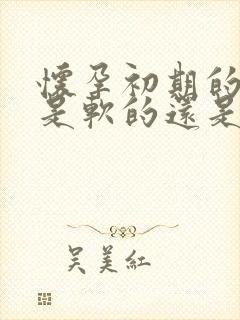 懷孕初期的
是軟的還是
吳美紅